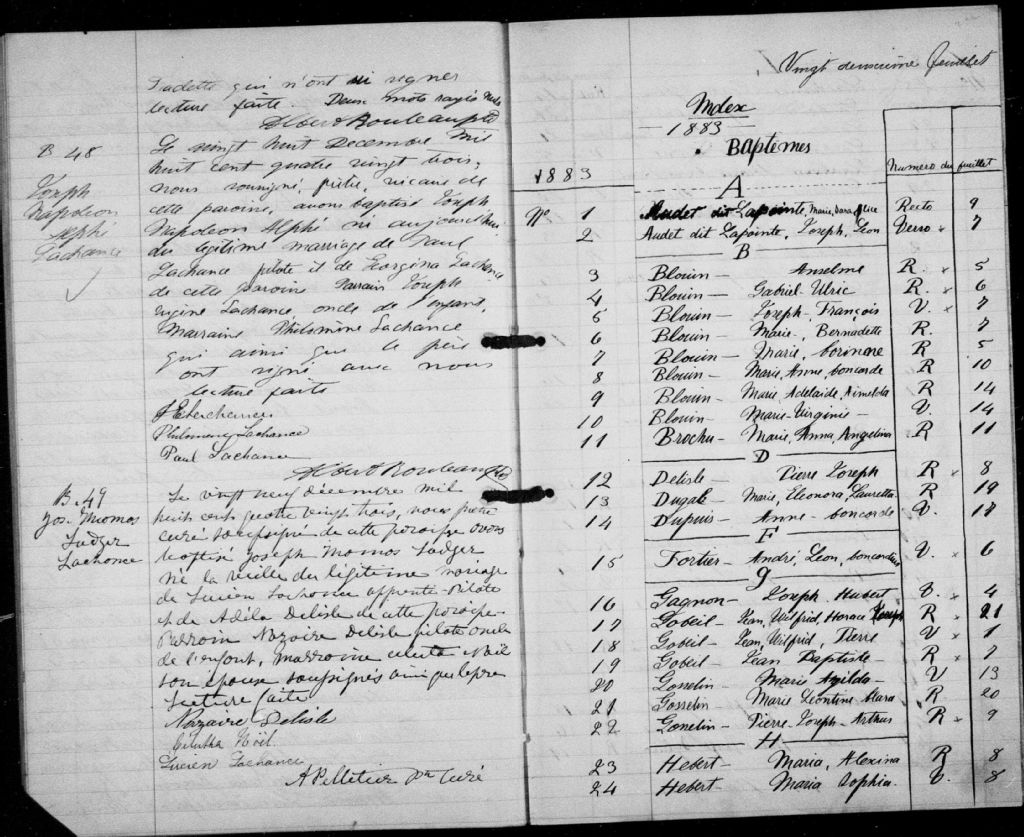 Nadette qui n'ont su signer
lecture faite. Deux mots rayés nuls
Albert Rouleau ptre
B 48
Joseph
Napoleon
Alphé
Lachance
Le vingt huit Decembre Mil
huit cent quatre vingt trois,
nous soussigné, prêtre, vicaire de
cette paroisse, avons baptisé Joseph
Napoleon Alphé né aujourd'hui
du légitime mariage de Paul
Lachance pilote et de Georgina Lachance
de cette paroisse Parrain Joseph
Eugène Lachance, oncle de l'enfant,
Marraine Philomène Lachance
qui ainsi que le père
ont signé avec nous
lecture faite
Philomene Lachance
Paul Lachance
Albert Rouleau ptre
B. 49
Jos. Thomas
Ludger
Lachance
Le vingt neuf décembre mil
huit cent quatre vingt trois, nous prêtre
curé soussigné de cette paroisse avons
baptisé Joseph Thomas Ludger
né la veille du légitime mariage
de Lucien Lachance apprenti-pilote
et de Adéla Delisle de cette paroisse
Parrain Nazaire Delisle pilote oncle
de l'enfant, Marraine Noël
son epouse soussignés ainsi que le père
Lecture faite
Nazaire Delisle
Noël
Lucien Lachance
A Pelletier Ptre Curé
Vingt deuxième feuillet
Index
1883
Baptêmes
1883 Numero du feuillet
A
No 1 Audet dit Lapointe, Marie, Dara, Alice Recto 9
2 Audet dit Lapointe, Joseph, Leon Verso x 7
B
3 Blouin — Anselme R. x 5
4 Blouin — Gabriel-Ulric R. x 6
5 Blouin — Joseph, François V. x 7
6 Blouin — Marie, Bernadette R. 7
7 Blouin — Marie, Corinne R 5
8 Blouin — Marie, Anne Concorde R 10
9 Blouin — Marie, Adelaide, R 14
10 Blouin — Marie-Virginie — V. 14
11 Brochu — Marie, Anna, Angelina R 11
D
12 Delisle — Pierre Joseph R x 8
13 Dugale — Marie, Eleonora, Lauretta R 19
14 Dupuis — Anne - Concorde V. 17
F
15 Fortier — André, Leon, V. x 6
G
16 Gagnon — Joseph Hubert V. x 4
17 Gobeil — Jean, Wilfrid, Horace Joseph R x 21
18 Gobeil — Jean, Wilfrid, Pierre V x 1
19 Gobeil — Jean Baptiste — R x 2
20 Gosselin — Marie Azilda — V 13
21 Gosselin — Marie Léontine Clara R 20
22 Gosselin — Pierre Joseph - Arthur R x 9
H
23 Hebert — Maria, Alexina R 8
24 Hebert — Maria Sophia — V. 8